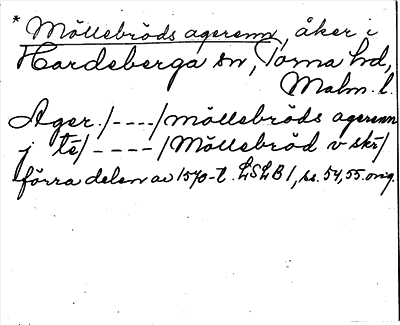 * Möllebröds agerenn, åker i
Hardeberga sn, Torna hd,
Malm. l.
Ager. /----/ möllebröds agerenn
j té /----/ Möllebröd v skr/
förra delen av 1570-t. LSLB 1, ss. 54, 55. orig.